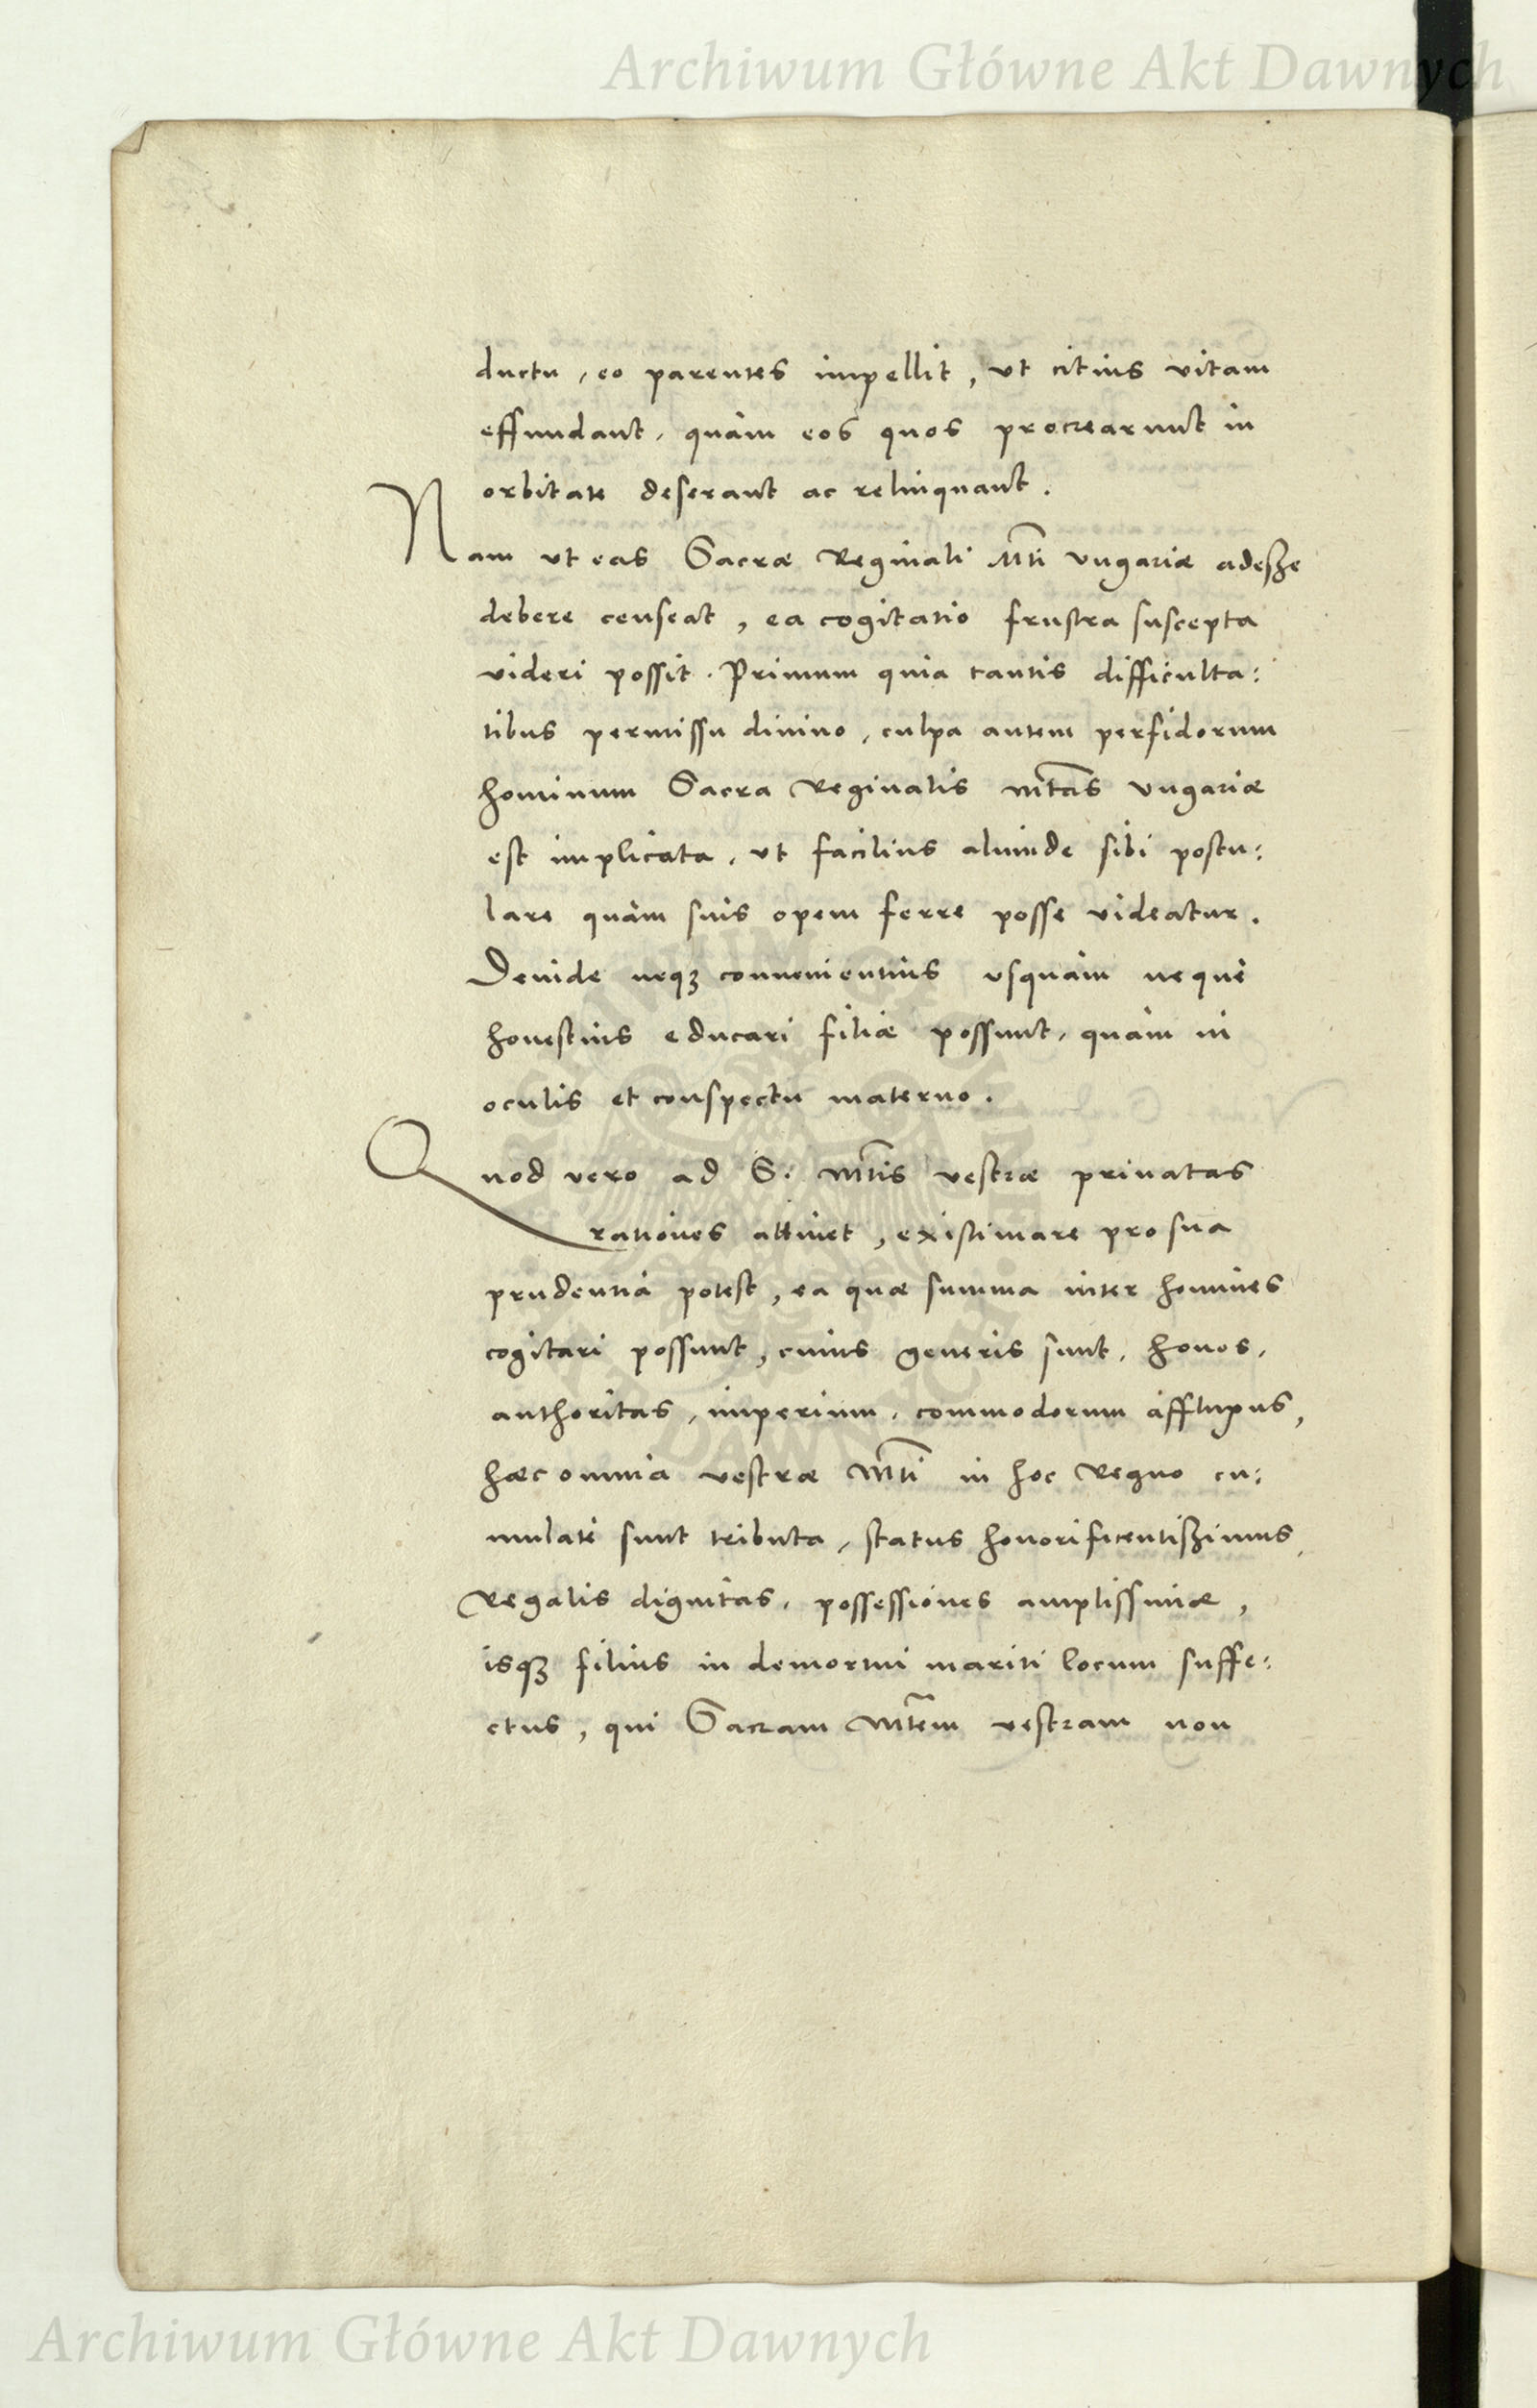 Archiwum Główne Akt Dawnych
ductu, eo parentes impellit, ut citius vitam
effundant, quàm eos quos procrearunt in
orbitate deserant ac relinquant.
Nam ut eas Sacræ Reginali Mti Ungariæ adesse
debere censeat, ea cogitatio frustra suscepta
videri possit. Primum quia tantis difficulta:
tibus permissu divino, culpa autem perfidorum
hominum Sacra Reginalis Mtas Ungariæ
est implicata, ut facilius aliunde sibi postu:
lare quàm suis opem ferre posse videatur.
Deinde neqȝ convenientius usquàm neque
honestius educari filiæ possunt, quàm in
oculis et conspectu materno.
Quod vero ad S. Mtis vestræ privatas
rationes attinet, existimare pro sua
prudentia potest, ea quæ summa inter homines
cogitari possunt, cuius generis sunt, honos,
authoritas, imperium, commodorum affluxus,
hæc omnia vestræ Mti in hoc Regno cu:
mulate sunt tributa, status honorificentissimus,
Regalis dignitas, possessiones amplissimæ,
isqȝ filius in demortui mariti locum suffe:
ctus, qui Sacram Mtem vestram non
ARCHIWUM GŁÓWNE AKT DAWNYCH
Archiwum Główne Akt Dawnych